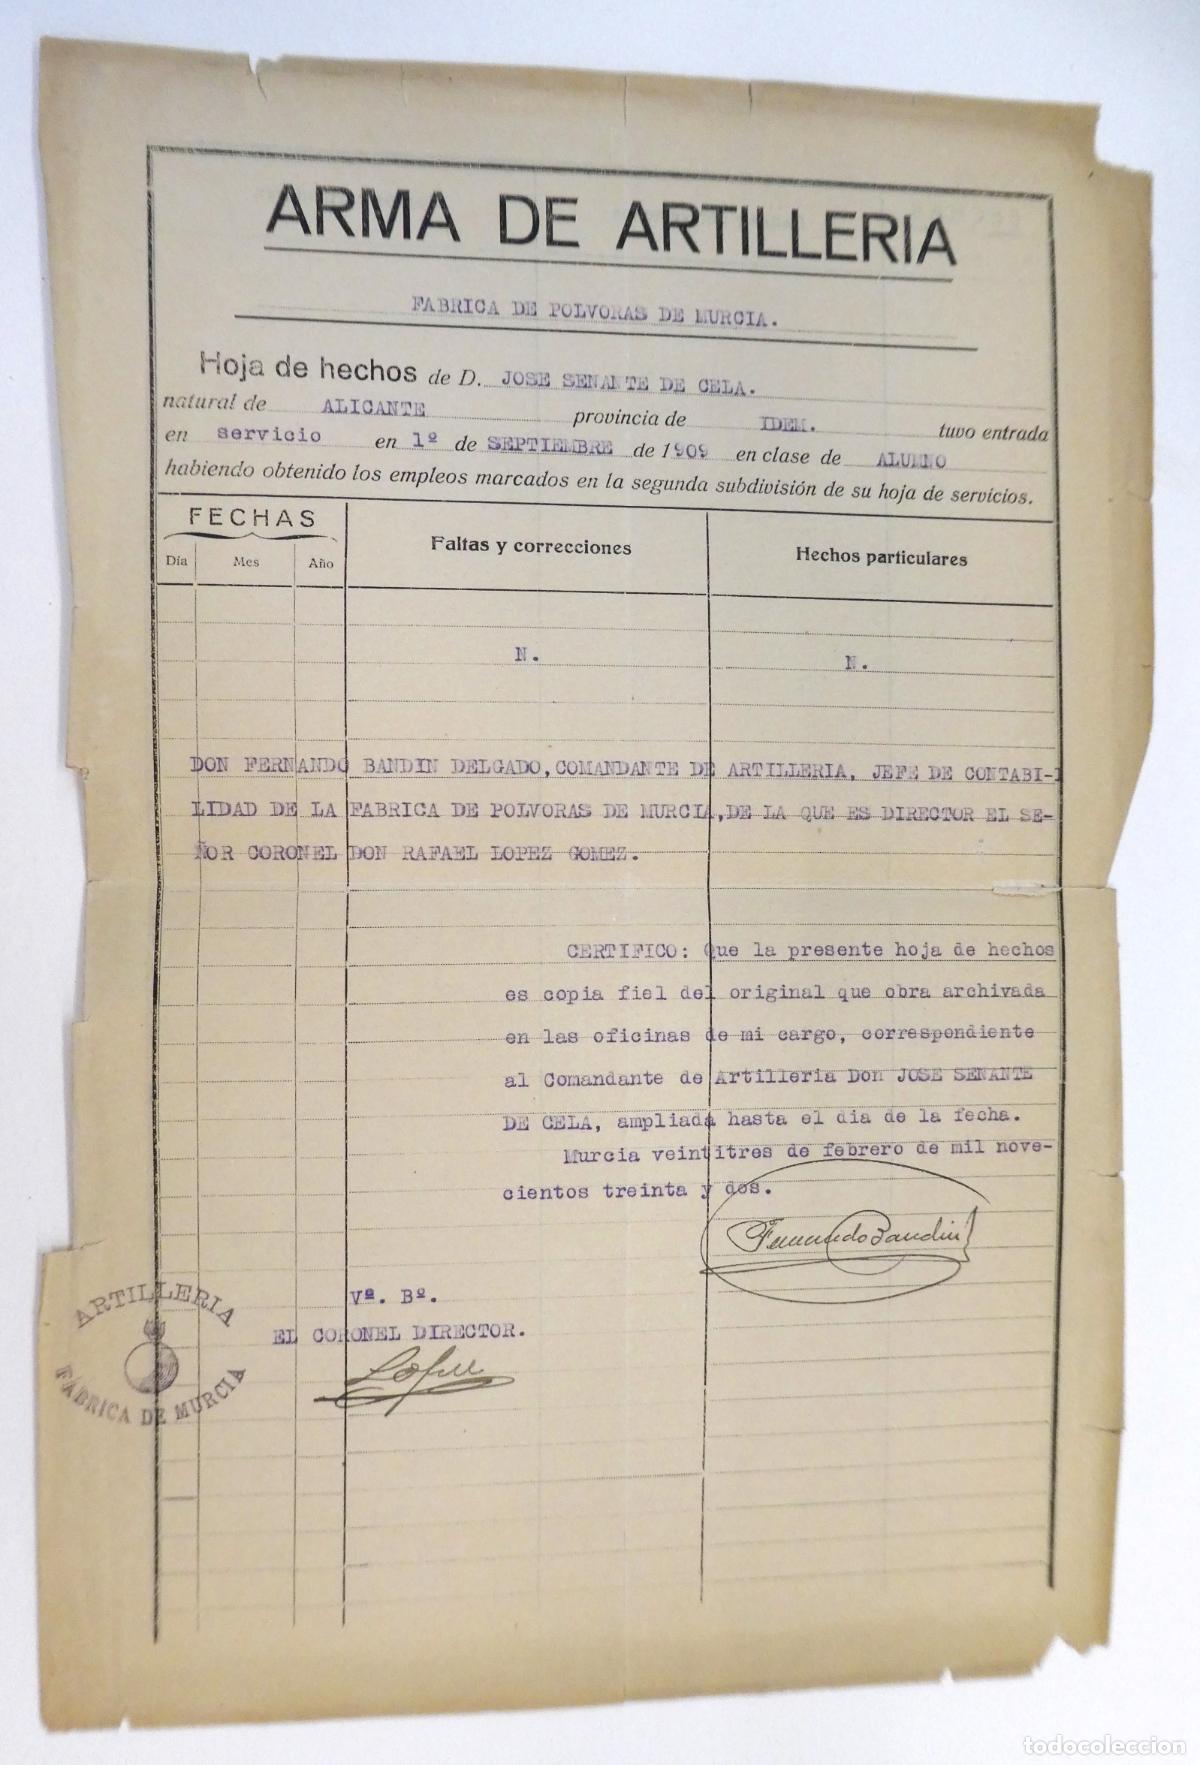 ARMA DE ARTILLERIA
FABRICA DE POLVORAS DE MURCIA.
Hoja de hechos de D. JOSE SENANTE DE CELA.
natural de ALICANTE provincia de IDEM. tuvo entrada
en servicio en 1º de SEPTIEMBRE de 1909 en clase de ALUMNO
habiendo obtenido los empleos marcados en la segunda subdivisión de su hoja de servicios.
FECHAS
Día Mes Año
Faltas y correcciones
Hechos particulares
N. N.
DON FERNANDO BANDIN DELGADO, COMANDANTE DE ARTILLERIA, JEFE DE CONTABI-
LIDAD DE LA FABRICA DE POLVORAS DE MURCIA, DE LA QUE ES DIRECTOR EL SE-
ÑOR CORONEL DON RAFAEL LOPEZ GOMEZ.
CERTIFICO: Que la presente hoja de hechos
es copia fiel del original que obra archivada
en las oficinas de mi cargo, correspondiente
al Comandante de Artilleria Don JOSE SENANTE
DE CELA, ampliada hasta el dia de la fecha.
Murcia veintitres de febrero de mil nove-
cientos treinta y dos.
Fernando Bandin
Vª. Bº.
EL CORONEL DIRECTOR.
ARTILLERIA
FABRICA DE MURCIA
todocoleccion